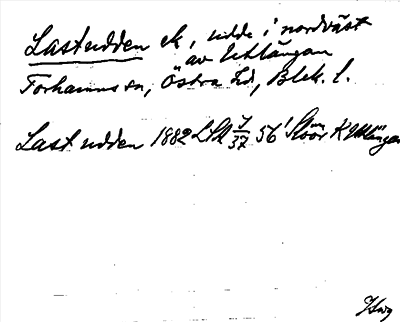 Lastudden ek, udde i nordväst
av Utlängan
Torhamns sn, Östra hd, Blek. l.
Lastudden 1882 LSA 7/37 56' Skär K Utlängan